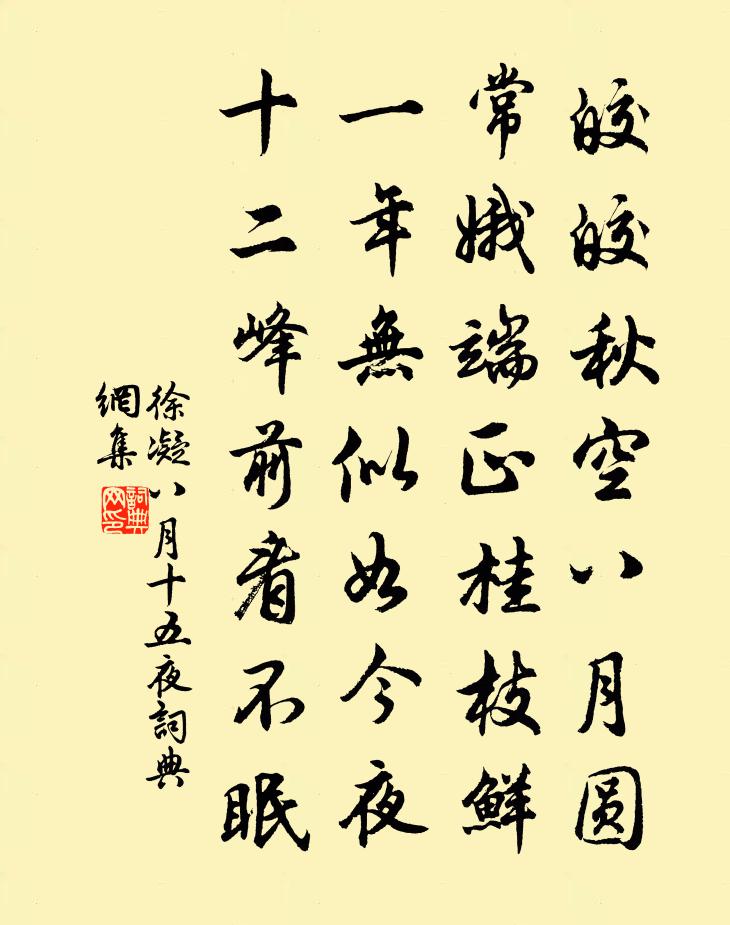 皎皎秋空八月圓
常娥端正桂枝鮮
一年無似如今夜
十二峰前看不眠
徐凝八月十五夜詞典
網集
詞典
网印